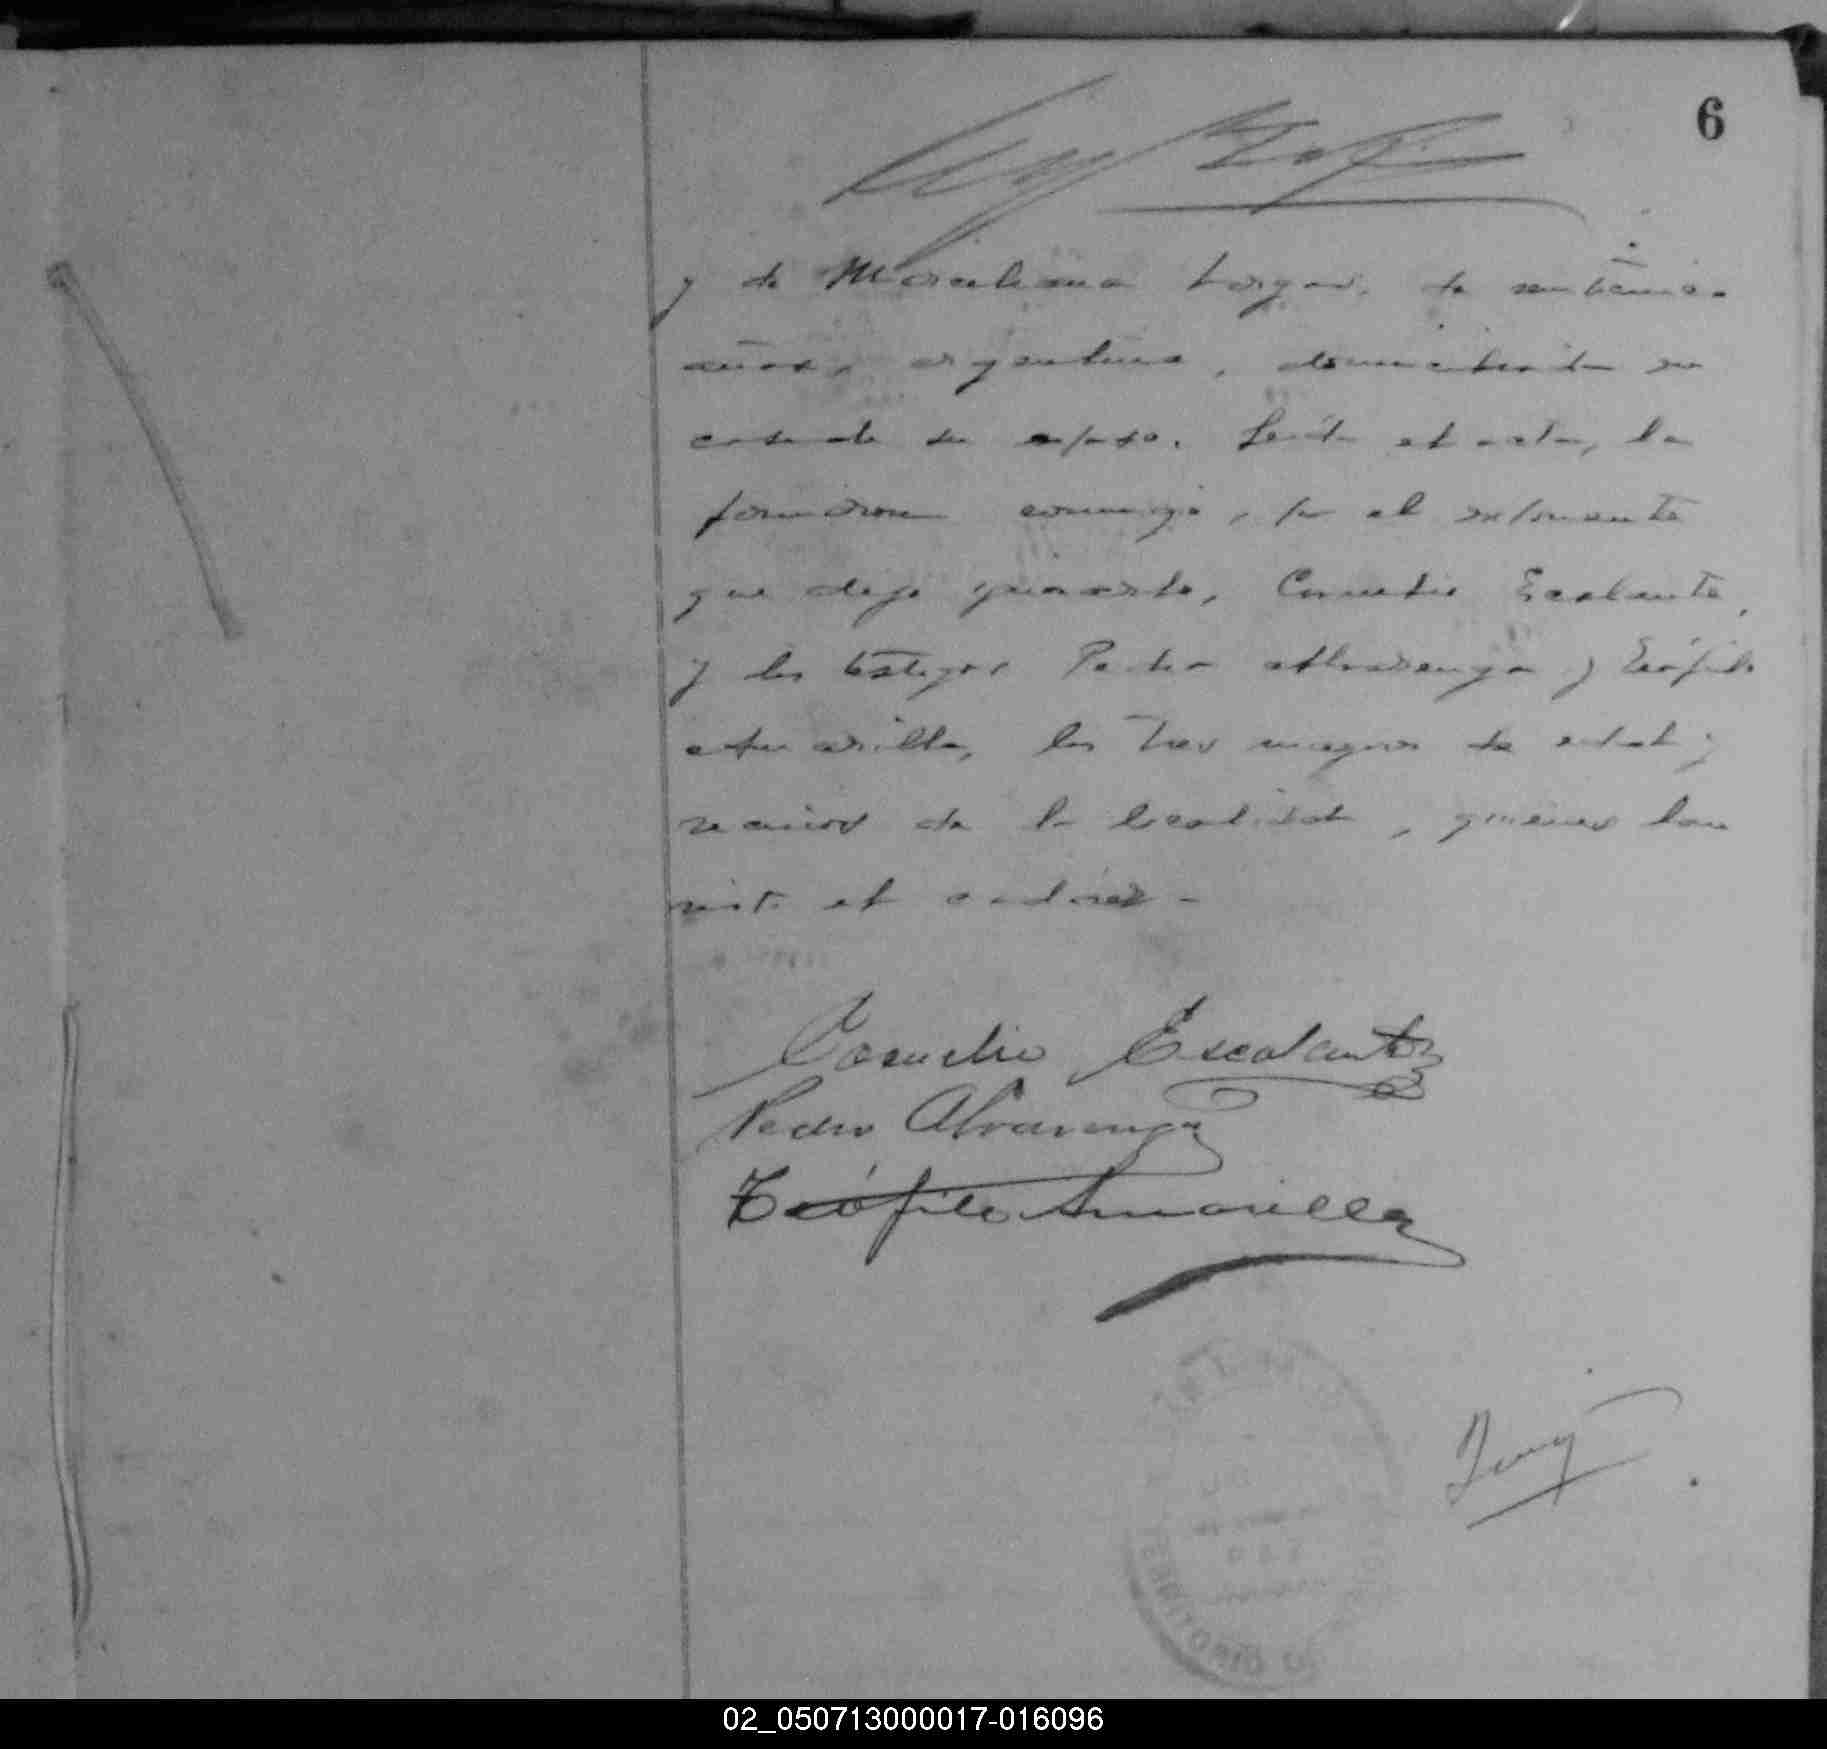 6
y de Marceliana Vargas, de veintecinco
años, argentina, domiciliada en
casa de su esposo. Leída el acta, la
firmaron conmigo, por el exponente
que dejo
Cornelio Escalante,
y los testigos Pedro Alvarenga y Teófilo
Amarilla, los tres mayores de edad y
vecinos de la localidad, quienes han
visto el cadáver -
Cornelio Escalante
Pedro Alvarenga
Teófilo Amarilla
TERRITORIO
02_050713000017-016096